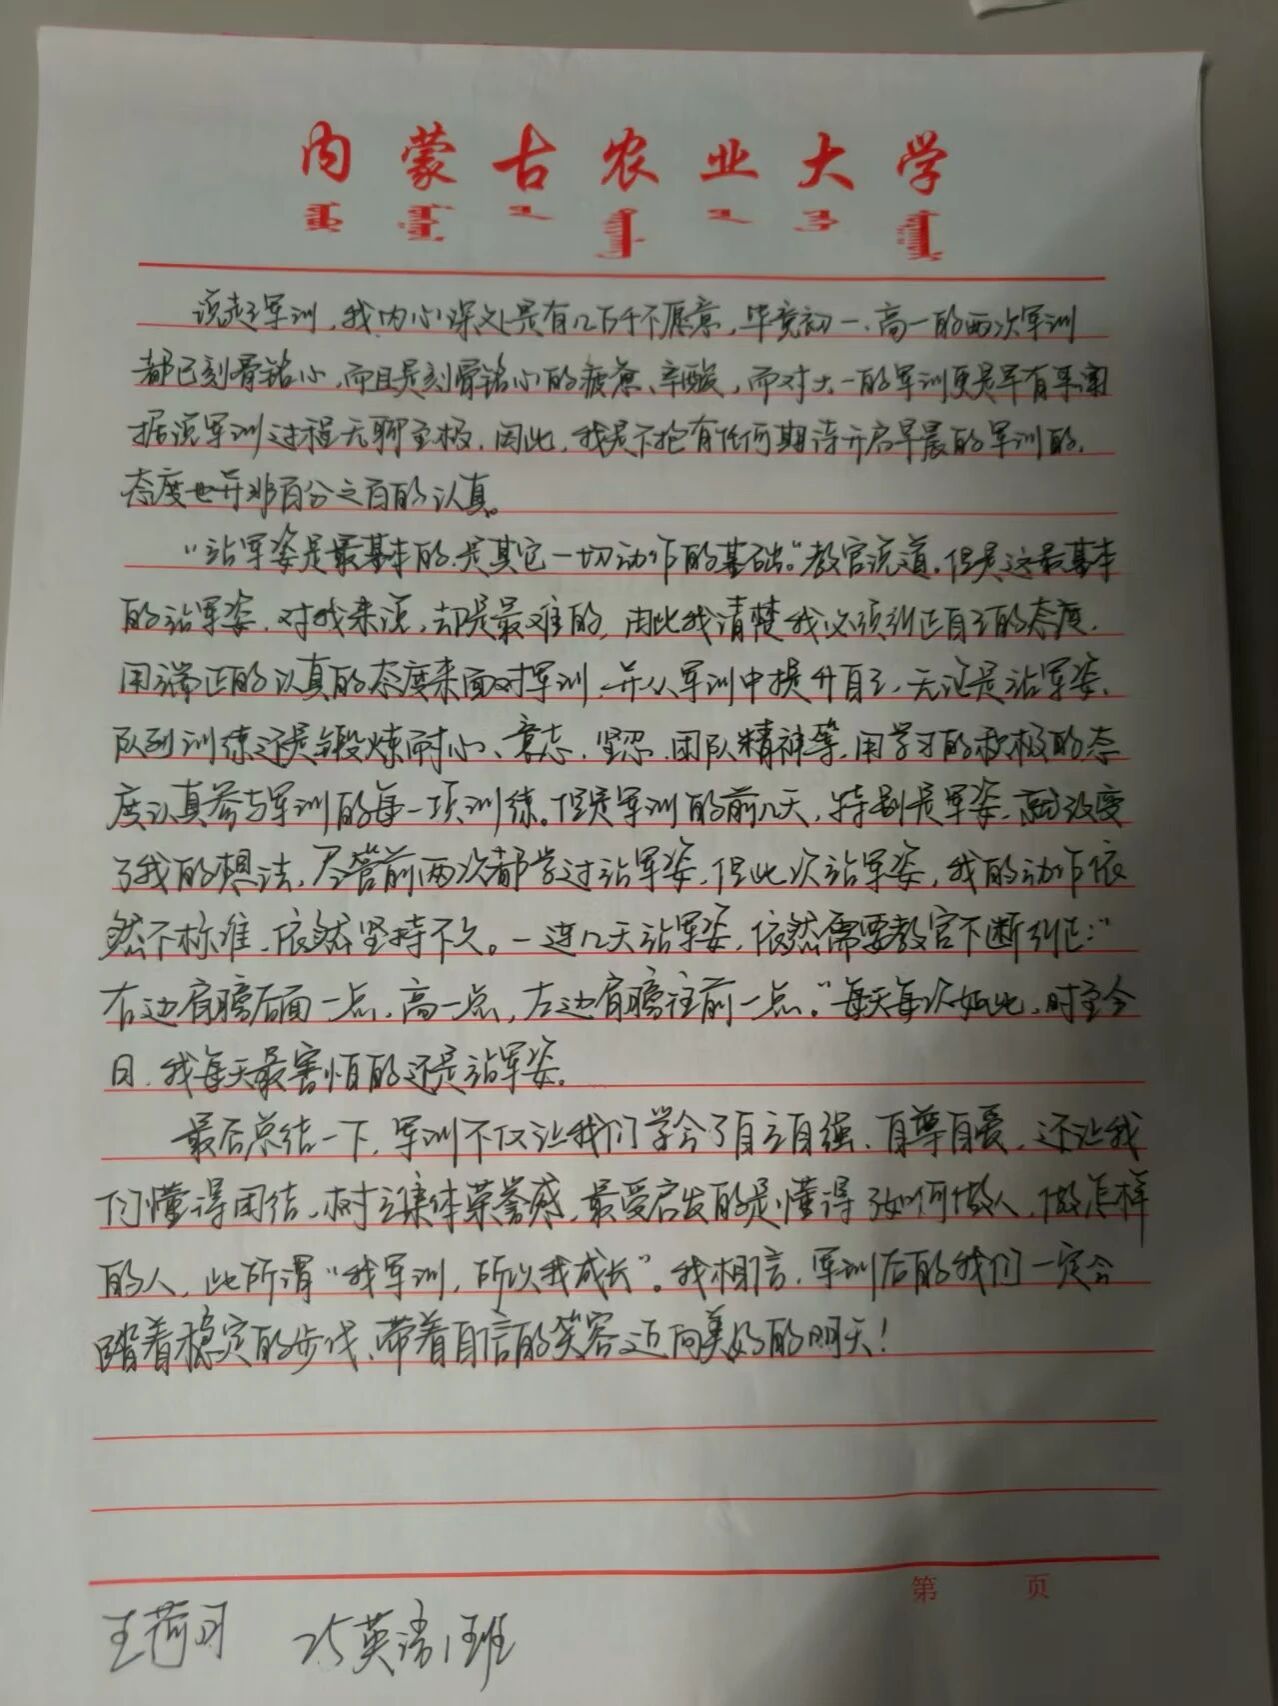 内蒙古农业大学
说起军训，我内心深处是有几百千不愿意，毕竟初一、高一的两次军训
都已刻骨铭心，而且是刻骨铭心的疲惫、辛酸，而对大一的军训更是早有耳闻
据说军训过程无聊至极，因此，我是不抱有任何期待开启早晨的军训的，
态度也并非百分之百的认真。
“站军姿是最基本的，是其它一切动作的基础。”教官说道，但是这最基本
的站军姿，对我来说，却是最难的，由此我清楚我必须纠正自己的态度，
用端正的认真的态度来面对军训，并从军训中提升自己，无论是站军姿、
队列训练还是锻炼耐心、意志、坚忍、团队精神等，用学习的积极的态
度认真参与军训的每一项训练。但是军训的前几天，特别是军姿，就改变
了我的想法，尽管前两次都学过站军姿，但此次站军姿，我的动作依
然不标准，依然坚持不久。一连几天站军姿，依然需要教官不断纠正：“
右边肩膀后面一点，高一点，左边肩膀往前一点。”每天每次如此，时至今
日，我每天最害怕的还是站军姿。
最后总结一下，军训不仅让我们学会了自立自强、自尊自爱，还让我
们懂得团结，树立集体荣誉感，最受启发的是懂得了如何做人，做怎样
的人，此所谓“我军训，所以我成长”。我相信，军训后的我们一定会
踏着稳定的步伐、带着自信的笑容迈向美好的明天！
第 页
王荷 25英语1班